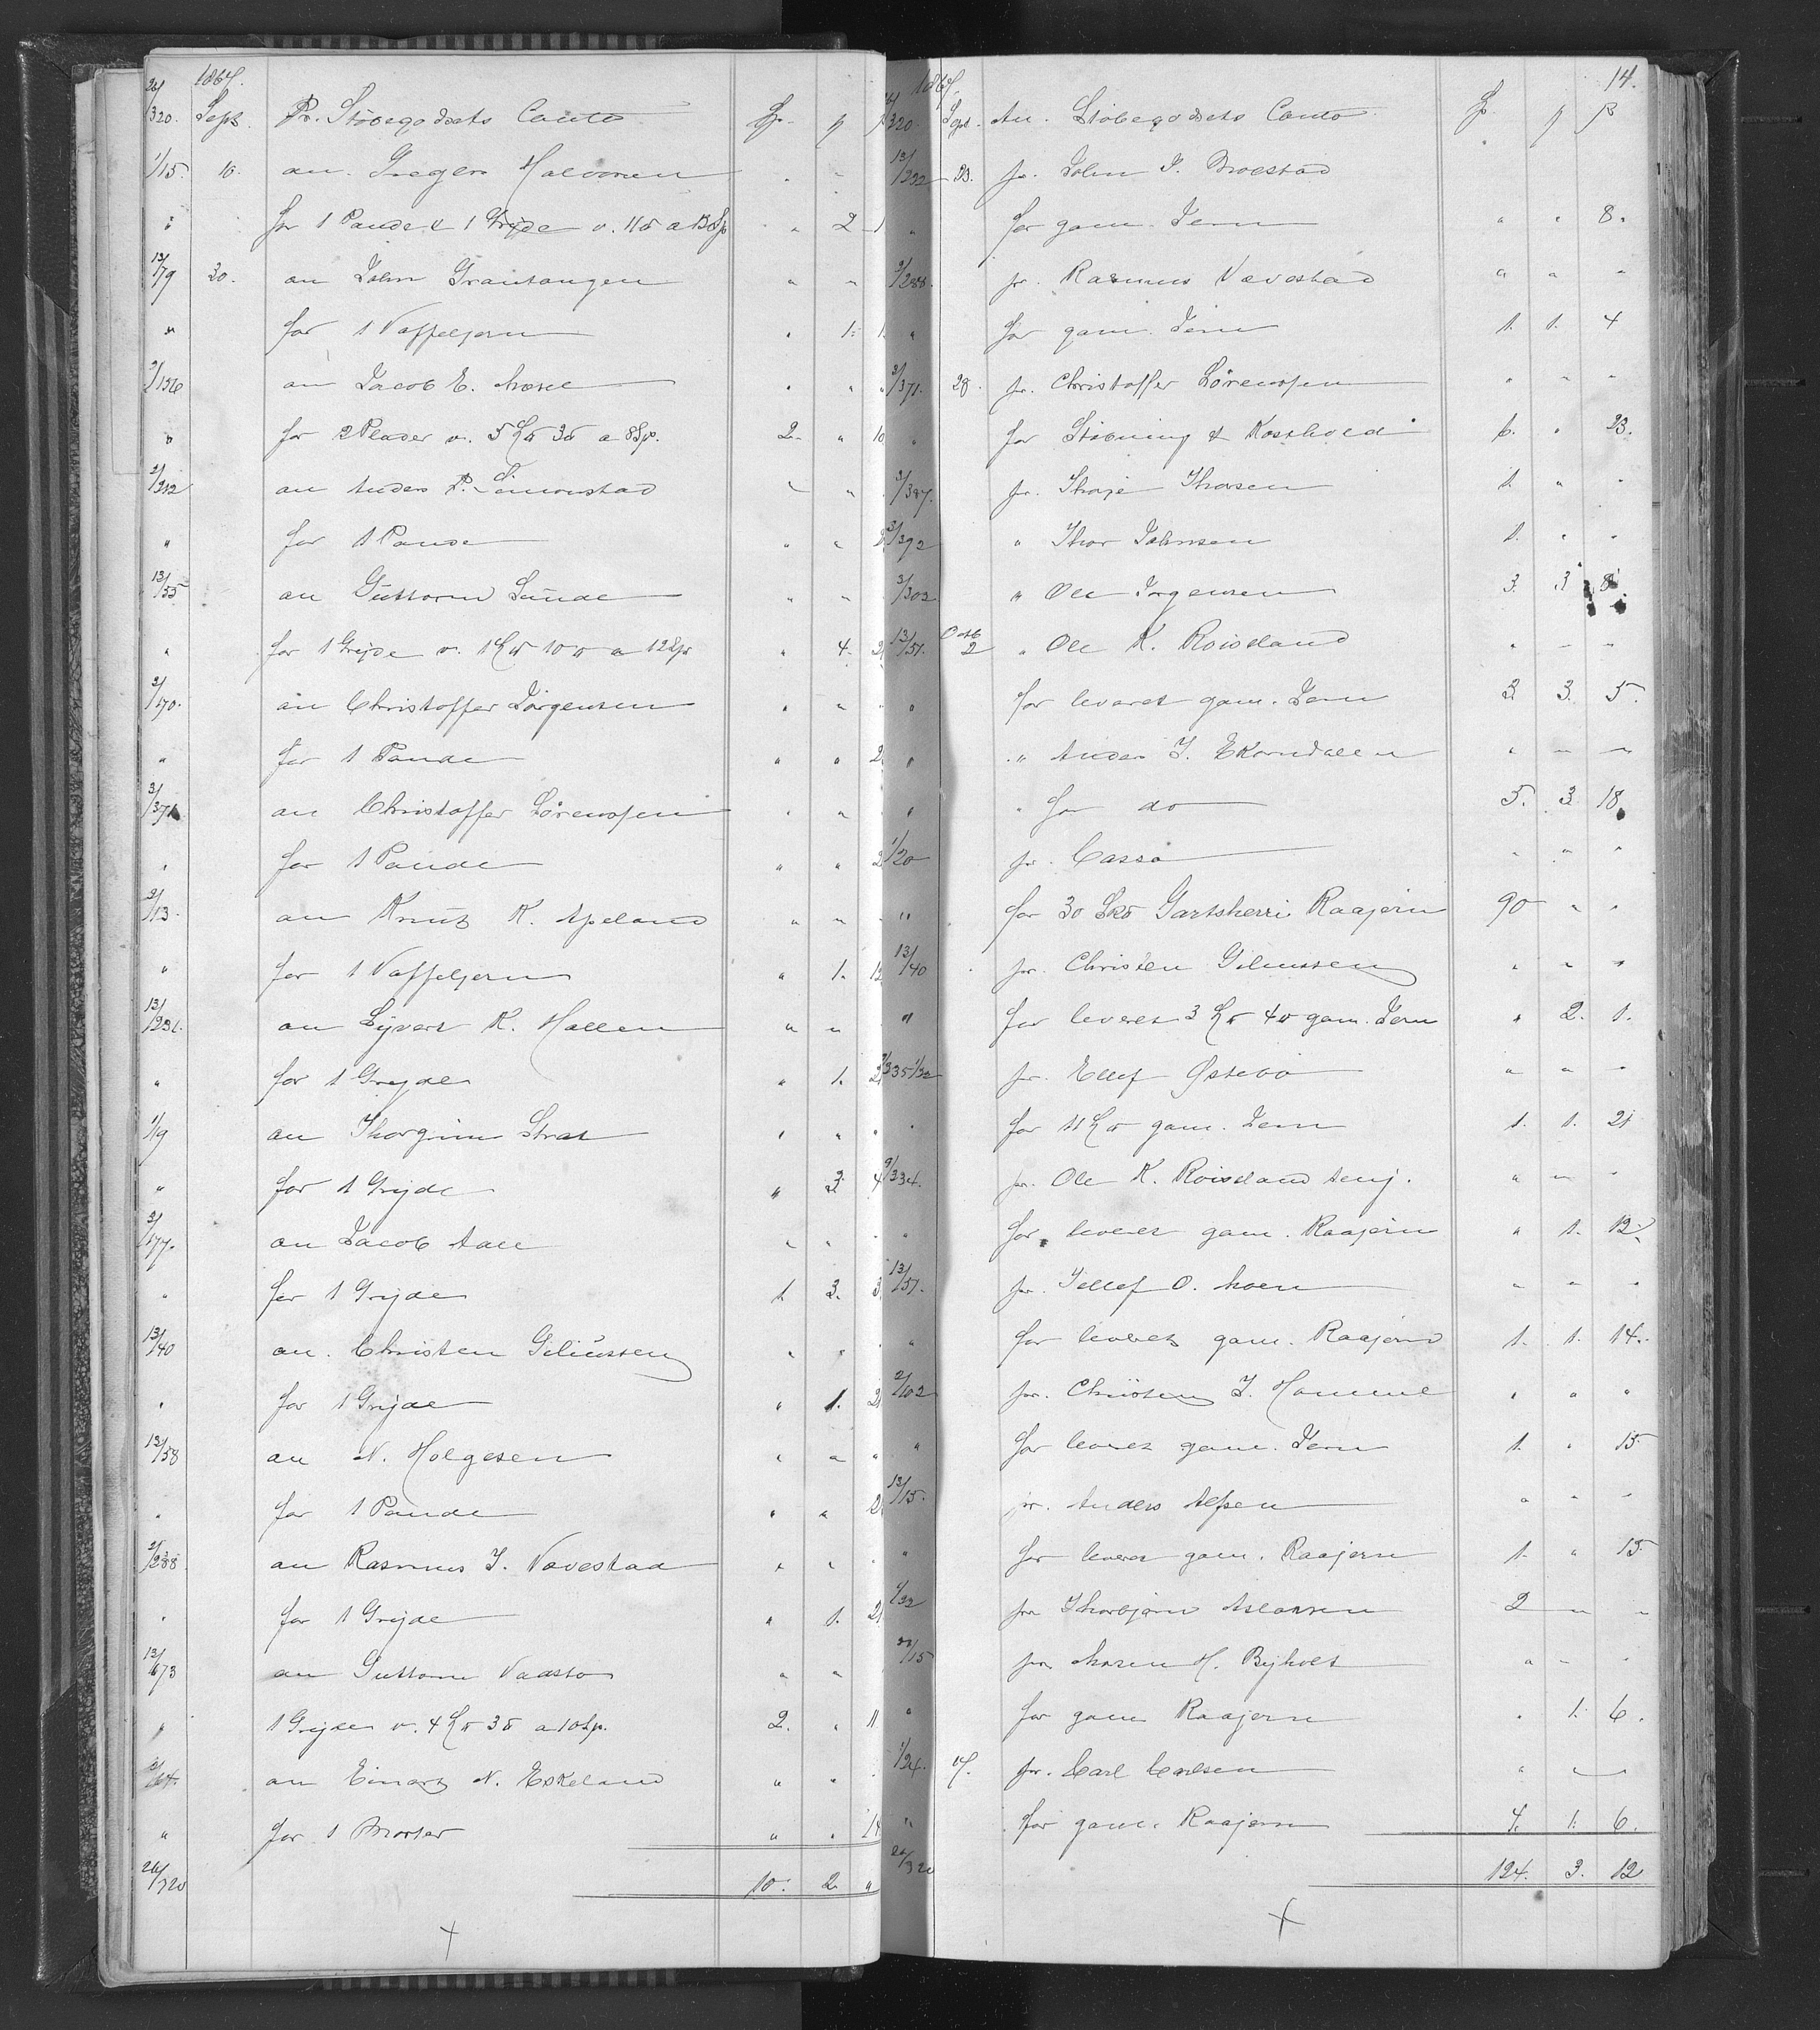 24/320. 1867. Sept. Pr. Støbegodsets Conto
1/15. 10. an. Gregers Halvorsen
" for 1 Pande & 1 Gryde v. 11 a 13 2
13/79 30. an John Grantangen " "
" for 1 Vaffeljern " 1.
2/136 an Jacob E. " "
" for 2 Plader v. 5 3 a 8 2. " 10
2/212 an Anders P. Simonstad " "
" for 1 Pande " "
13/55 an Guttorm Lunde " "
" for 1 Gryde v. 1 10 a 12 " 4.
2/170. an Christoffer Jørgensen " "
" for 1 Pande " " 2
3/371 an Christoffer Lörenssen " "
" for 1 Pande " " 2
2/13. an Knut K. Apeland " "
" for 1 Vaffeljern " 1. 12
13/231. an Syvert K. Hallen " "
" for 1 Gryde " 1. 2
1/9 an Thorgrim " "
" for 1 Gryde " 3 4
2/177. an Jacob Aall " "
" for 1 Gryde 1. 3. 3
13/40 an. Christen Giliussen " "
" for 1 Gryde " 1. 2
13/58 an N. Holgesen " " "
" for 1 Pande " " 2
2/288. an Rasmus J. Vævestad " "
" for 1 Gryde " 1. 2
13/673 an Guttorm " "
" 1 Gryde v. 4 3 a 10 2. " 11
an Einart N. Eskeland " "
" for 1 Morter " " 14
24/320 10. 2 "
14.
1867. 320. Sept. An. Støbegodsets Conto
13/232 23. pr. John J. Moestad
" for gam. Jern " " 8.
2/288. pr. Rasmus Vævestad " " "
" for gam. Jern 1. 1. 4
3/371. 28. pr. Christoffer Lörenssen " " "
" for Støbning & Kosthold 6. " 23.
3/387. pr. Thoje Thorsen 1. " "
3/392 " Thor Johnsen 1. " "
3/302 " Ole Jörgensen 3. 3 8
13/51. Octb 2 " Ole K. Roisland " " "
" for leveret gam. Jern 3. 3. 5.
" " Anders J. Ekorndalen " " "
" " for do 5. 3 18
1/20 pr. Cassa " " "
" for 30 Gartsherri Raajern 90 " "
13/40 pr. Christen Giliussen " " "
" for leveret 3 4 gam. Jern " 2. 1.
335 1/32 pr. Ellef Østebö " " "
" for 11 gam. Jern 1. 1. 21
3/334. pr. Ole K. Roisland " " "
" for leveret gam. Raajern " 1. 12
13/51. pr. Tellef O. Moen " " "
" for leveret gam. Raajern 1. 1. 14.
2/102 pr. Christen J. Hammel " " "
" for leveret gam. Jern 1. " 15
13/15. pr. Anders Alfsen " " "
" for leveret gam. Raajern 1. " 15
1/32 pr Thorbjørn Aslaksen 2 " "
/15 pr. Maren H. Byholt " " "
" for gam Raajern " 1. 6.
1/24. 17. pr. Carl Carlsen " "
" for gam. Raajern 4. 1. 6.
24/320 124. 3. 12